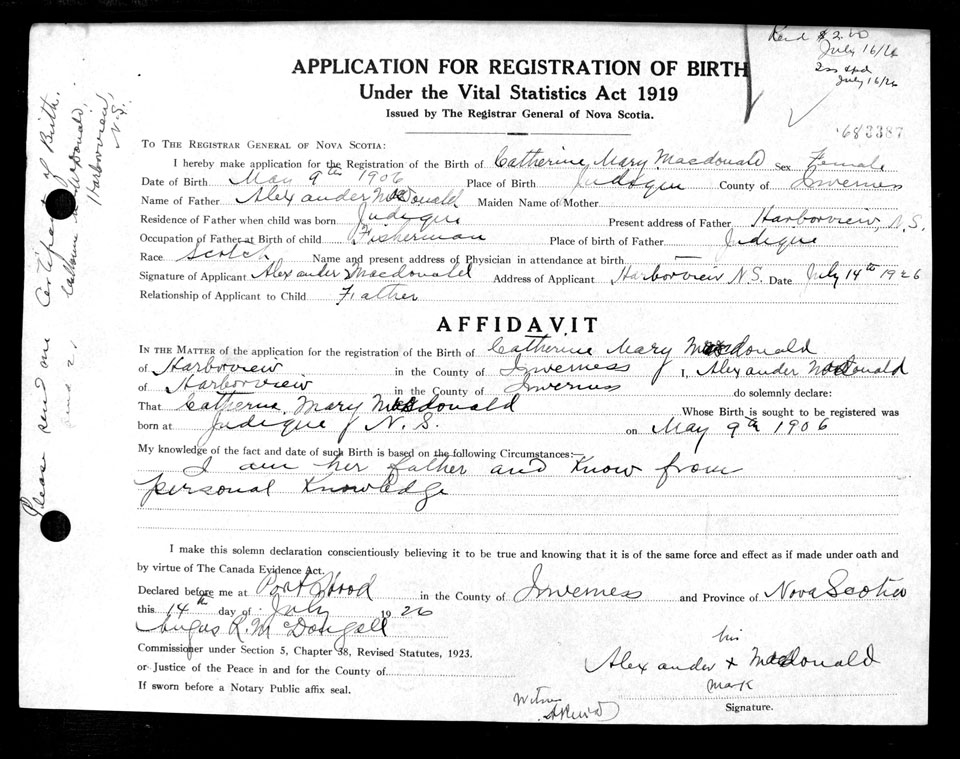 Recd $2.00
July 16/26
July 16/26
683387
APPLICATION FOR REGISTRATION OF BIRTH
Under the Vital Statistics Act 1919
Issued by The Registrar General of Nova Scotia.
To The Registrar General of Nova Scotia:
I hereby make application for the Registration of the Birth of Catherine Mary Macdonald Sex Female
Date of Birth May 9th 1906 Place of Birth Judique County of Inverness
Name of Father Alexander Macdonald Maiden Name of Mother
Residence of Father when child was born Judique Present address of Father Harborview, N.S.
Occupation of Father at Birth of child Fisherman Place of birth of Father Judique
Race Scotch Name and present address of Physician in attendance at birth —
Signature of Applicant Alexander Macdonald Address of Applicant Harborview N.S. Date July 14th 1926
Relationship of Applicant to Child Father
AFFIDAVIT
In the Matter of the application for the registration of the Birth of Catherine Mary Macdonald
of Harborview in the County of Inverness I, Alexander Macdonald
of Harborview in the County of Inverness do solemnly declare:
That Catherine Mary Macdonald Whose Birth is sought to be registered was
born at Judique N.S. on May 9th 1906
My knowledge of the fact and date of such Birth is based on the following Circumstances:
I am her father and know from
personal knowledge
I make this solemn declaration conscientiously believing it to be true and knowing that it is of the same force and effect as if made under oath and
by virtue of The Canada Evidence Act.
Declared before me at Port Hood in the County of Inverness and Province of Nova Scotia
this 14th day of July 1926
Angus R. McDougall
Commissioner under Section 5, Chapter 38, Revised Statutes, 1923.
or Justice of the Peace in and for the County of
If sworn before a Notary Public affix seal.
his
Alexander x Macdonald
mark
Signature.
Witness
Please send one Certificate of Birth.
Catherine Macdonald,
Harborview,
N.S.